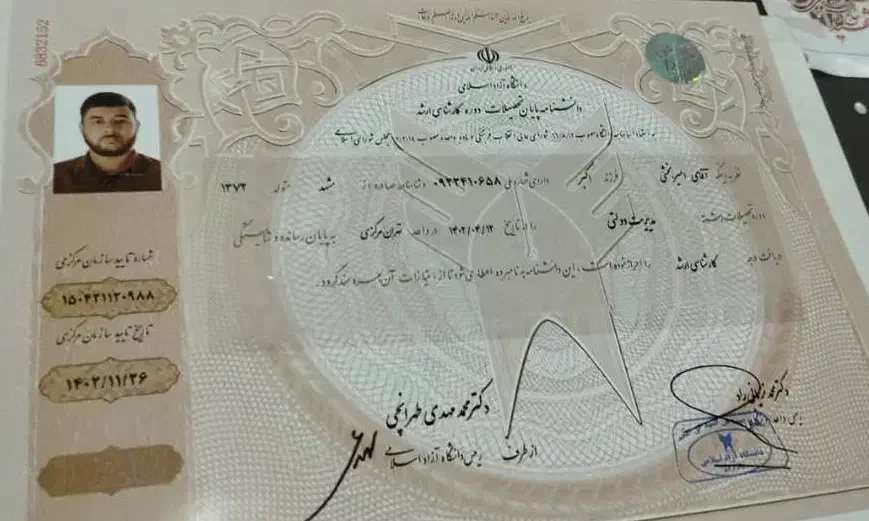 6832152
جمهوری اسلامی ایران
دانشگاه آزاد اسلامی
دانشنامه پایان تحصیلات دوره کارشناسی ارشد
نظر به اینکه آقای امیر بخشی فرزند اکبر دارای شماره ملی ۰۹۲۲۴۱۰۶۵۸ و شناسنامه صادره از مشهد متولد ۱۳۷۲
دوره تحصیلات رشته مدیریت دولتی را در تاریخ ۱۴۰۲/۰۴/۱۲ در واحد تهران مرکزی به پایان رسانده و شایستگی
دریافت درجه کارشناسی ارشد را احراز نموده است، این دانشنامه به نامبرده اعطا می شود تا از امتیازات آن بهره مند گردد.
شماره تایید سازمان مرکزی
۱۵۰۴۳۱۱۲۰۹۸۸
تاریخ تایید سازمان مرکزی
۱۴۰۲/۱۱/۲۶
دکتر محمد مهدی طهرانچی
از طرف رئیس دانشگاه آزاد اسلامی
دکتر محمد
رئیس واحد
دانشگاه آزاد اسلامی